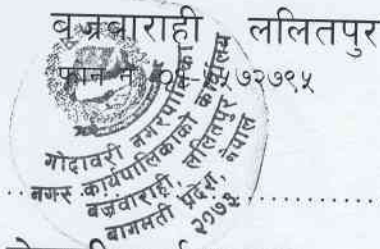 वज्रवाराही ललितपुर
फोन नं ०१-५५७२७९५
गोदावरी नगरपालिका
नगर कार्यपालिकाको कार्यालय
बज्रवाराही, ललितपुर
बागमती प्रदेश, नेपाल
२०७३